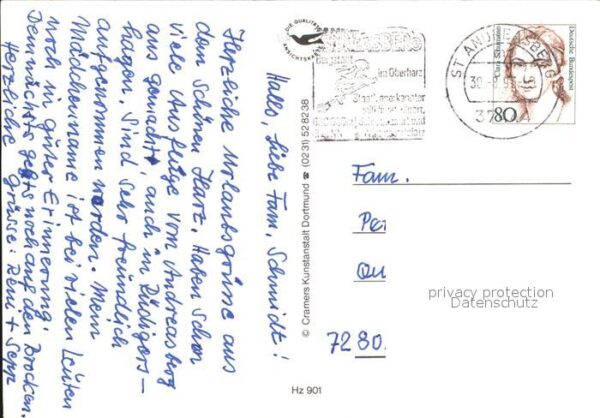 Hallo, liebe Fam. Schmidt!
Herzliche Urlaubsgrüsse aus
dem Schönen Harz. Haben schon
viele Ausflüge von Andreasberg
aus gemacht, auch in Rüdigers-
hagen. Sind sehr freundlich
aufgenommen worden. Mein
Mädchenname ist bei vielen Leuten
noch in guter Erinnerung.
Demnächst gehts noch auf den Brocken.
Herzliche Grüsse: Reni + Sepp
DIE QUALITÄTS
ANSICHTSKARTE
im Oberharz
ST ANDREASBERG
Clara Schumann
Deutsche Bundespost
80
Fam.
Pet
Qu
7280
privacy protection
Datenschutz
© Cramers Kunstanstalt Dortmund ☎ (0231) 528238
Hz 901